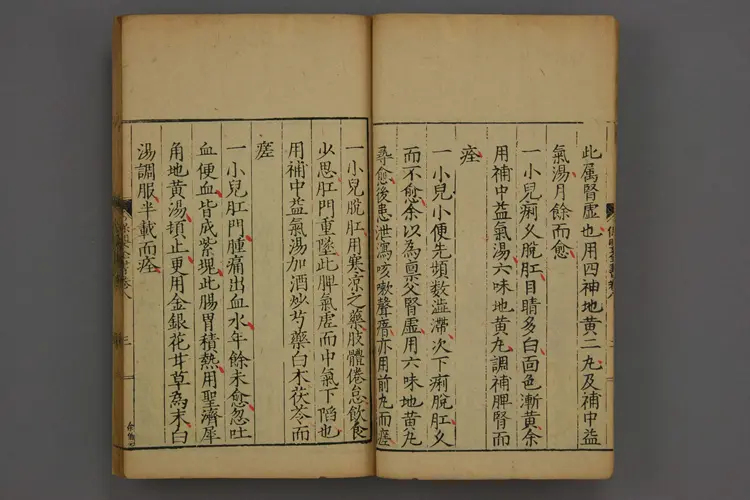 此属腎虛也用四神地黃二丸及補中益
氣湯月餘而愈
一小兒痢久脫肛目睛多白面色漸黃余
用補中益氣湯六味地黃丸調補脾腎而
痊
一小兒小便先頻數澁滯次下痢脫肛久
而不愈余以為禀父腎虛用六味地黃丸
尋愈後患泄瀉咳嗽聲瘖亦用前丸而痊
一小兒脫肛用寒凉之藥肢體倦怠飲食
少思肛門重墜此脾氣虛而中氣下陷也
用補中益氣湯加酒炒芍藥白木茯苓而
痊
一小兒肛門腫痛出血水年餘未愈忽吐
血便血皆成紫塊此腸胃積熱用聖濟犀
角地黃湯頓止更用金銀花甘草為末白
湯調服半載而痊
保嬰全書卷八
三